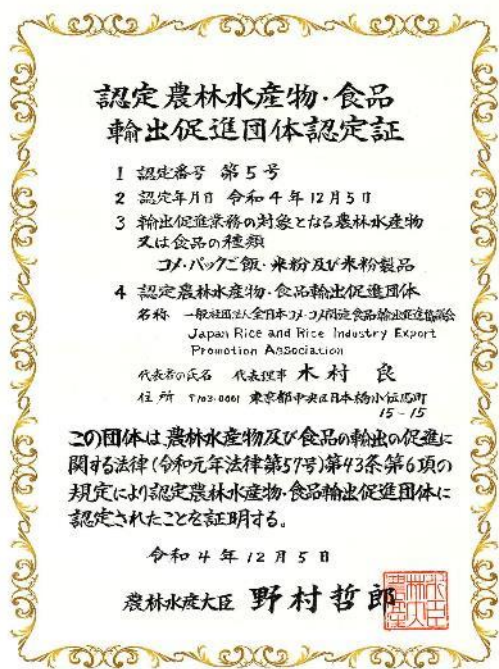 認定農林水産物・食品
輸出促進団体認定証
1 認定番号 第5号
2 認定年月日 令和4年12月5日
3 輸出促進業務の対象となる農林水産物
又は食品の種類
コメ・パックご飯・米粉及び米粉製品
4 認定農林水産物・食品輸出促進団体
名称 一般社団法人全日本コメ・コメ関連食品輸出促進協議会
Japan Rice and Rice Industry Export
Promotion Association
代表者の氏名 代表理事 木村 良
住所 〒103-0001 東京都中央区日本橋小伝馬町
15-15
この団体は、農林水産物及び食品の輸出の促進に
関する法律(令和元年法律第57号)第43条第6項の
規定により認定農林水産物・食品輸出促進団体に
認定されたことを証明する。
令和4年12月5日
農林水産大臣 野村哲郎